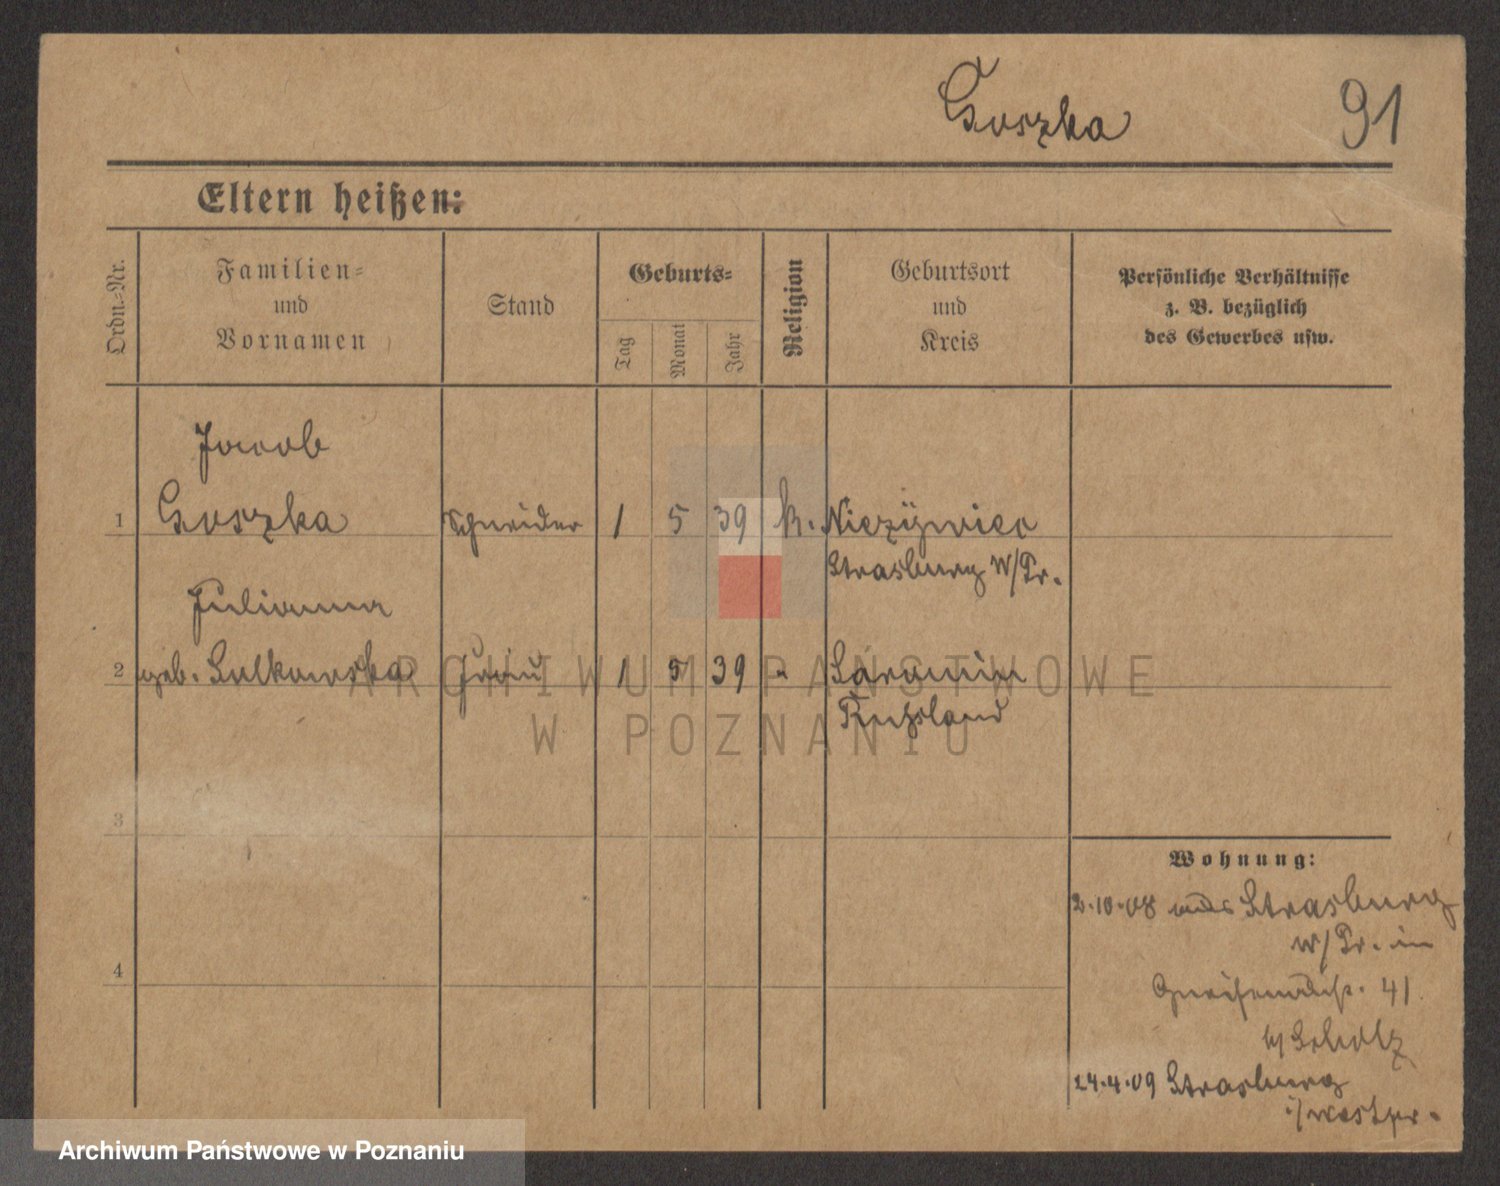 Goszka
91
Eltern heißen:
Ordn.-Nr.
Familien-
und
Vornamen
Stand
Geburts-
Tag
Monat
Jahr
Religion
Geburtsort
und
Kreis
Persönliche Verhältnisse
z. B. bezüglich
des Gewerbes usw.
Jacob
1 Goszka Schneider 1 5 39 k. Niezÿwiec
Strasburg W/Pr.
Julianna
2 geb. Sulkowska Frau 1 5 39 "
Russland
3
4
Wohnung:
2.10.08 aus Strasburg
W/Pr. in
Gneisenaustr. 41
b/ Scholz
24.4.09 Strasburg
i/ Westpr.
ARCHIWUM PAŃSTWOWE
W POZNANIU
Archiwum Państwowe w Poznaniu